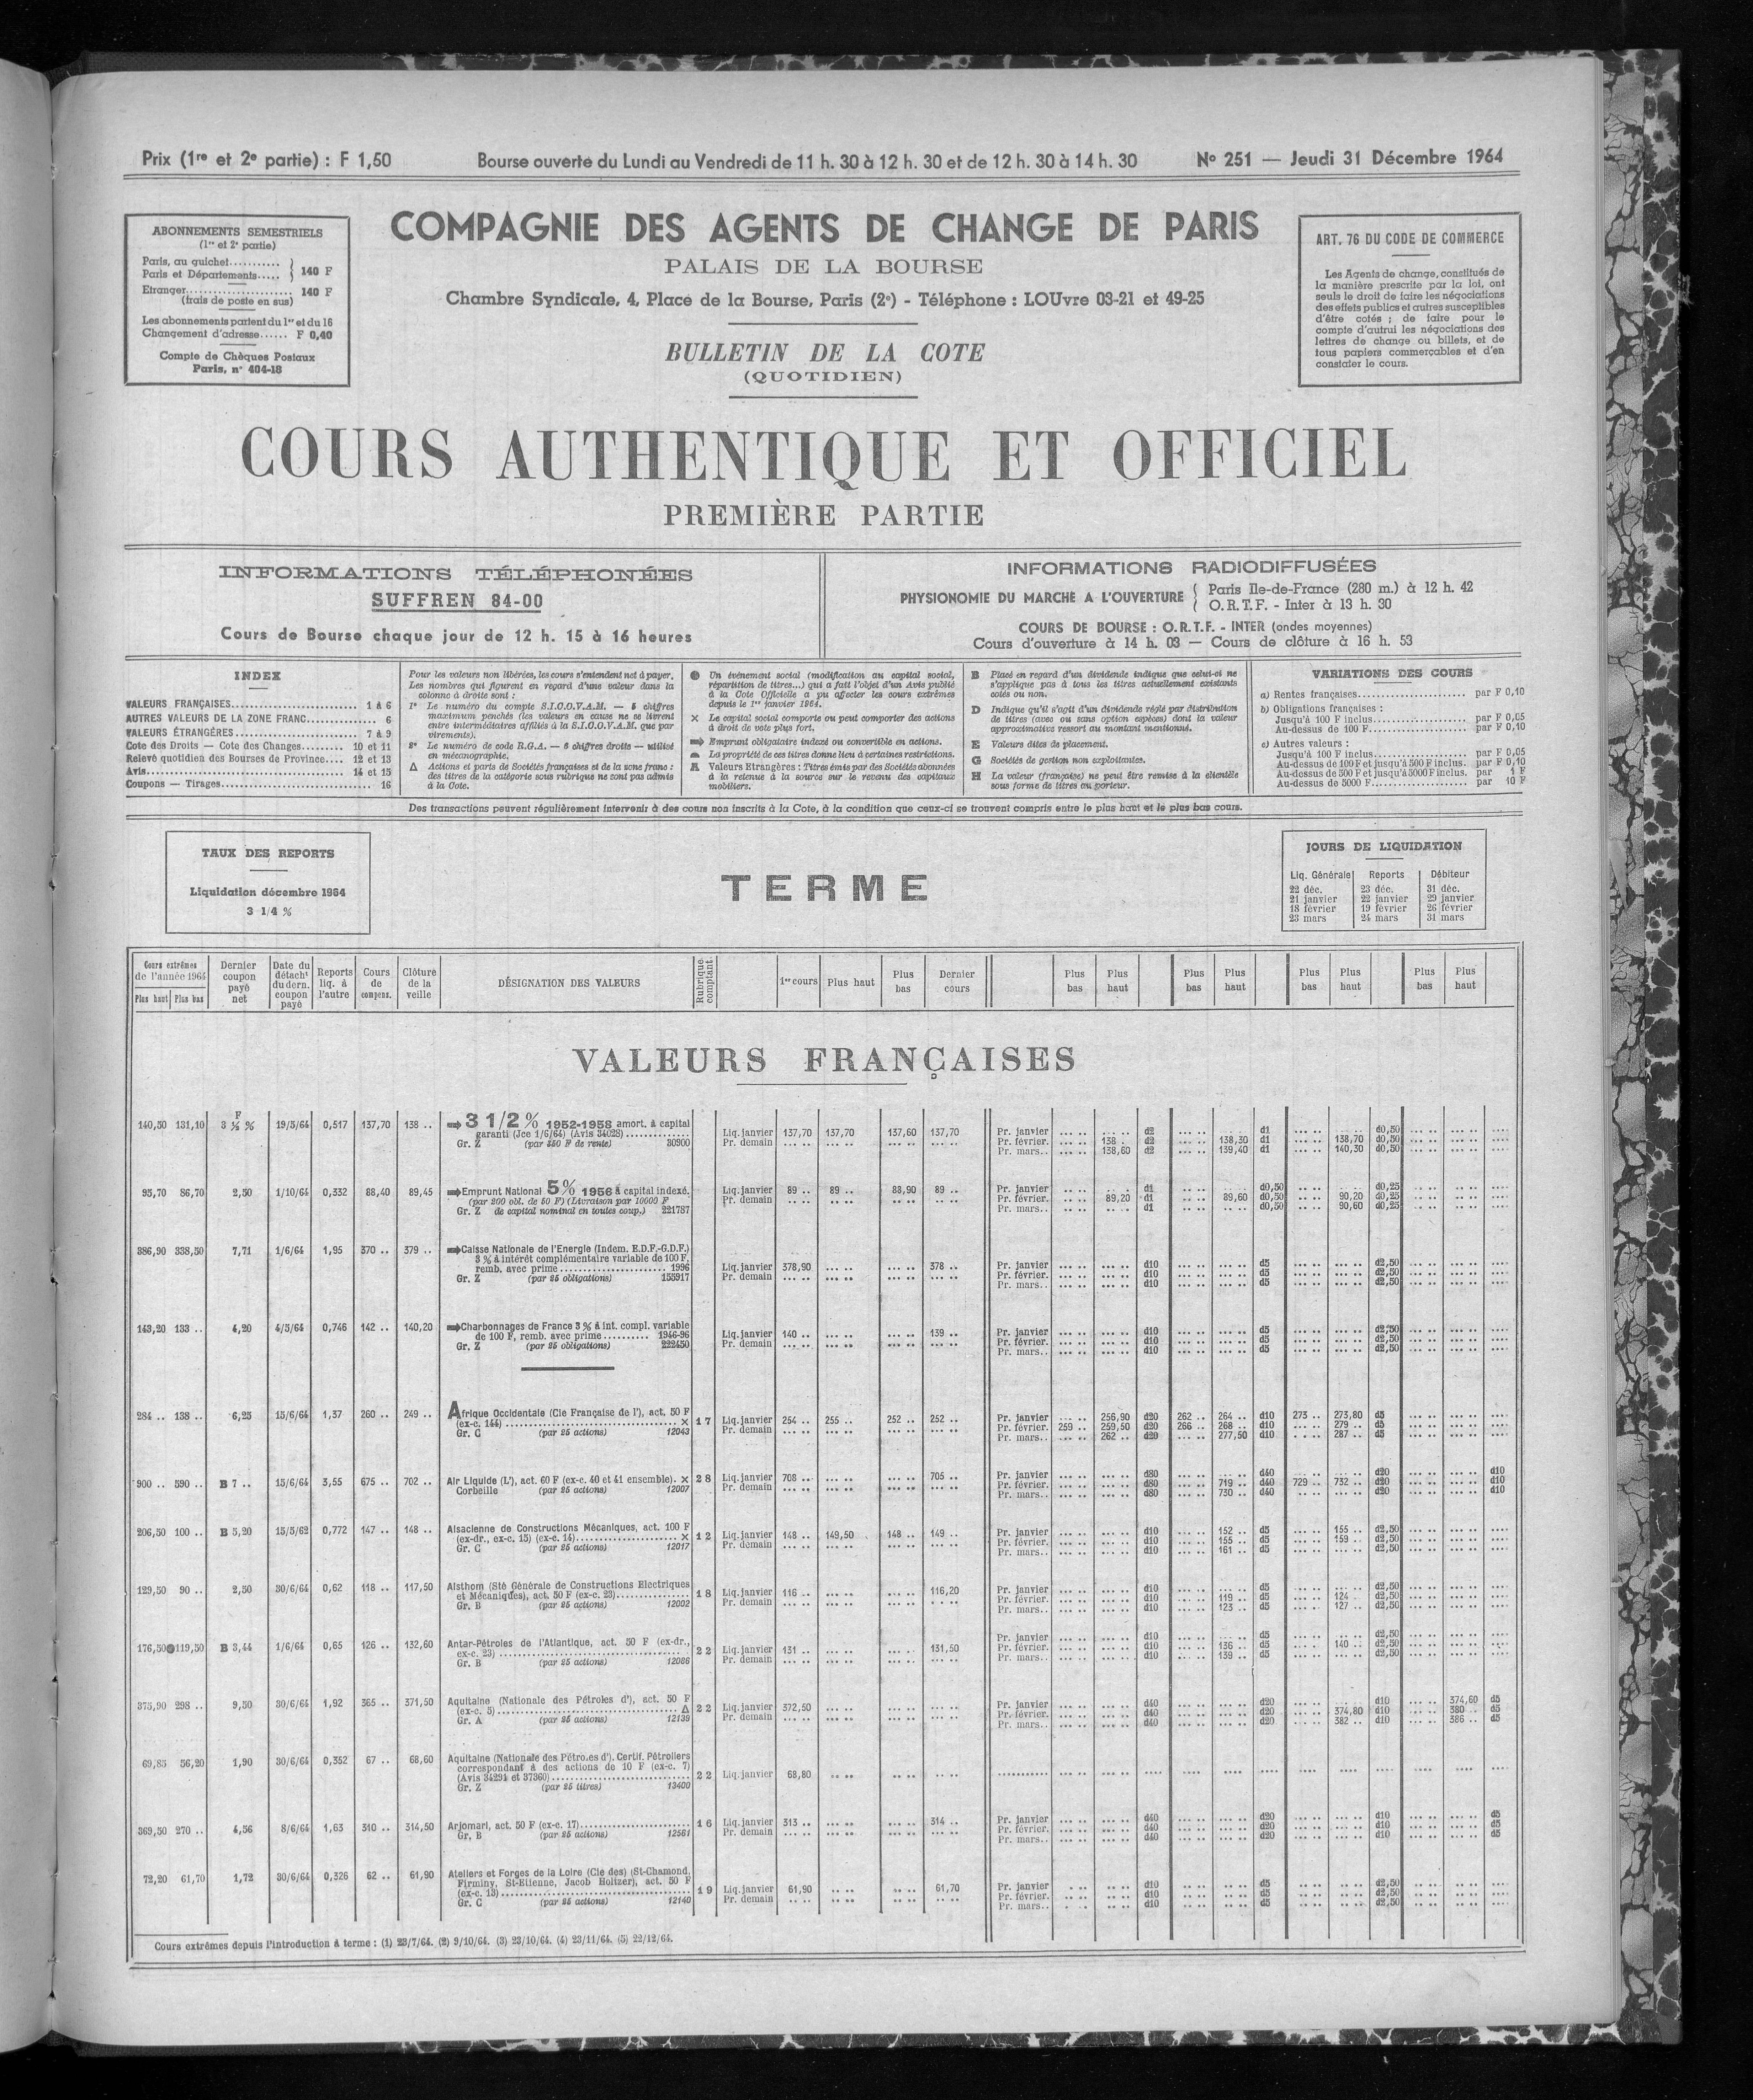 Prix (1re et 2e partie) : F 1,50 Bourse ouverte du Lundi au Vendredi de 11 h. 30 à 12 h. 30 et de 12 h. 30 à 14 h. 30 No 251 — Jeudi 31 Décembre 1964
ABONNEMENTS SEMESTRIELS
(1re et 2e partie)
Paris, au guichet...........
Paris et Départements..... } 140 F
Etranger..................... 140 F
(frais de poste en sus)
Les abonnements partent du 1er et du 16
Changement d'adresse...... F 0,40
Compte de Chèques Postaux
Paris, n° 404-18
COMPAGNIE DES AGENTS DE CHANGE DE PARIS
PALAIS DE LA BOURSE
Chambre Syndicale, 4, Place de la Bourse, Paris (2e) - Téléphone : LOUvre 03-21 et 49-25
BULLETIN DE LA COTE
(QUOTIDIEN)
ART. 76 DU CODE DE COMMERCE
Les Agents de change, constitués de
la manière prescrite par la loi, ont
seuls le droit de faire les négociations
des effets publics et autres susceptibles
d'être cotés ; de faire pour le
compte d'autrui les négociations des
lettres de change ou billets, et de
tous papiers commerçables et d'en
constater le cours.
COURS AUTHENTIQUE ET OFFICIEL
PREMIÈRE PARTIE
INFORMATIONS TÉLÉPHONÉES
SUFFREN 84-00
Cours de Bourse chaque jour de 12 h. 15 à 16 heures
INFORMATIONS RADIODIFFUSÉES
PHYSIONOMIE DU MARCHÉ A L'OUVERTURE { Paris Ile-de-France (280 m.) à 12 h. 42
O.R.T.F. - Inter à 13 h. 30
COURS DE BOURSE : O.R.T.F. - INTER (ondes moyennes)
Cours d'ouverture à 14 h. 03 — Cours de clôture à 16 h. 53
INDEX
VALEURS FRANÇAISES........ 1 à 6
AUTRES VALEURS DE LA ZONE FRANC........ 6
VALEURS ÉTRANGÈRES........ 7 à 9
Cote des Droits — Cote des Changes........ 10 et 11
Relevé quotidien des Bourses de Province.... 12 et 13
Avis........ 14 et 15
Coupons — Tirages........ 16
Pour les valeurs non libérées, les cours s'entendent net à payer.
Les nombres qui figurent en regard d'une valeur dans la
colonne à droite sont :
1° Le numéro du compte S.I.C.O.V.A.M. — 5 chiffres
maximum penchés (les valeurs en cause ne se livrent
entre intermédiaires affiliés à la S.I.C.O.V.A.M. que par
virements).
2° Le numéro de code R.G.A. — 6 chiffres droits — utilisé
en mécanographie.
Δ Actions et parts de Sociétés françaises et de la zone franc :
des titres de la catégorie sous rubrique ne sont pas admis
à la Cote.
● Un événement social (modification au capital social,
répartition de titres...) qui a fait l'objet d'un Avis publié
à la Cote Officielle a pu affecter les cours extrêmes
depuis le 1er janvier 1964.
× Le capital social comporte ou peut comporter des actions
à droit de vote plus fort.
➡ Emprunt obligataire indexé ou convertible en actions.
La propriété de ces titres donne lieu à certaines restrictions.
A Valeurs Etrangères : Titres émis par des Sociétés abonnées
à la retenue à la source sur le revenu des capitaux
mobiliers.
B Placé en regard d'un dividende indique que celui-ci ne
s'applique pas à tous les titres actuellement existants
cotés ou non.
D Indique qu'il s'agit d'un dividende réglé par distribution
de titres (avec ou sans option espèces) dont la valeur
approximative ressort au montant mentionné.
E Valeurs dites de placement.
G Sociétés de gestion non exploitantes.
H La valeur (française) ne peut être remise à la clientèle
sous forme de titres au porteur.
VARIATIONS DES COURS
a) Rentes françaises........ par F 0,10
b) Obligations françaises :
Jusqu'à 100 F inclus........ par F 0,05
Au-dessus de 100 F........ par F 0,10
c) Autres valeurs :
Jusqu'à 100 F inclus........ par F 0,05
Au-dessus de 100 F et jusqu'à 500 F inclus. par F 0,10
Au-dessus de 500 F et jusqu'à 5000 F inclus. par 1 F
Au-dessus de 5000 F........ par 10 F
Des transactions peuvent régulièrement intervenir à des cours non inscrits à la Cote, à la condition que ceux-ci se trouvent compris entre le plus haut et le plus bas cours.
TAUX DES REPORTS
Liquidation décembre 1964
3 1/4 %
TERME
JOURS DE LIQUIDATION
Liq. Générale Reports Débiteur
22 déc. 23 déc. 31 déc.
21 janvier 22 janvier 29 janvier
18 février 19 février 26 février
23 mars 24 mars 31 mars
Cours extrêmes de l'année 1964 Plus haut Plus bas | Dernier coupon payé net | Date du détacht du dern. coupon payé | Reports liq. à l'autre | Cours de compens. | Clôture de la veille | DÉSIGNATION DES VALEURS | Rubrique comptant | 1er cours | Plus haut | Plus bas | Dernier cours | Plus bas | Plus haut | Plus bas | Plus haut | Plus bas | Plus haut | Plus bas | Plus haut
VALEURS FRANÇAISES
140,50 131,10 F 3 ½ % 19/5/64 0,517 137,70 138 .. ➡ 3 1/2 % 1952-1958 amort. à capital
garanti (Jce 1/6/64) (Avis 34028) Liq. janvier 137,70 137,70 137,60 137,70 Pr. janvier d2 d1 d0,50
Gr. Z (par 350 F de rente) 30900 Pr. demain Pr. février. 138 . d2 138,30 d1 138,70 d0,50
Pr. mars.. 138,60 d2 139,40 d1 140,30 d0,50
95,70 86,70 2,50 1/10/64 0,332 88,40 89,45 ➡ Emprunt National 5% 1956 à capital indexé. Liq. janvier 89 .. 89 .. 88,90 89 .. Pr. janvier d1 d0,50 d0,25
(par 200 obl. de 50 F) (Livraison par 10000 F Pr. demain Pr. février. 89,20 d1 89,60 d0,50 90,20 d0,25
Gr. Z de capital nominal en toutes coup.) 221787 Pr. mars.. d1 d0,50 90,60 d0,25
386,90 338,50 7,71 1/6/64 1,95 370 .. 379 .. ➡ Caisse Nationale de l'Energie (Indem. E.D.F.-G.D.F.)
3 % à intérêt complémentaire variable de 100 F,
remb. avec prime........ 1996 Liq. janvier 378,90 378 .. Pr. janvier d10 d5 d2,50
Gr. Z (par 25 obligations) 155917 Pr. demain Pr. février. d10 d5 d2,50
Pr. mars.. d10 d5 d2,50
143,20 133 .. 4,20 4/5/64 0,746 142 .. 140,20 ➡ Charbonnages de France 3 % à int. compl. variable
de 100 F, remb. avec prime........ 1946-96 Liq. janvier 140 .. 139 .. Pr. janvier d10 d5 d2,50
Gr. Z (par 25 obligations) 222450 Pr. demain Pr. février. d10 d5 d2,50
Pr. mars.. d10 d5 d2,50
284 .. 138 .. 6,25 15/6/64 1,37 260 .. 249 .. Afrique Occidentale (Cie Française de l'), act. 50 F
(ex-c. 144)........ × 17 Liq. janvier 254 .. 255 .. 252 .. 252 .. Pr. janvier 256,90 d20 262 .. 264 .. d10 273 .. 273,80 d5
Gr. C (par 25 actions) 12043 Pr. demain Pr. février. 259 .. 259,50 d20 266 .. 268 .. d10 279 .. d5
Pr. mars.. 262 .. d20 277,50 d10 287 .. d5
900 .. 590 .. B 7 .. 15/6/64 3,55 675 .. 702 .. Air Liquide (L'), act. 60 F (ex-c. 40 et 41 ensemble). × 28 Liq. janvier 708 .. 705 .. Pr. janvier d80 d40 d20 d10
Corbeille (par 25 actions) 12007 Pr. demain Pr. février. d80 719 .. d40 729 .. 732 .. d20 d10
Pr. mars.. d80 730 .. d40 d20 d10
206,50 100 .. B 5,20 15/5/62 0,772 147 .. 148 .. Alsacienne de Constructions Mécaniques, act. 100 F
(ex-dr., ex-c. 15) (ex-c. 14)........ × 12 Liq. janvier 148 .. 149,50 148 .. 149 .. Pr. janvier d10 152 .. d5 155 .. d2,50
Gr. C (par 25 actions) 12017 Pr. demain Pr. février. d10 155 .. d5 159 .. d2,50
Pr. mars.. d10 161 .. d5 d2,50
129,50 90 .. 2,50 30/6/64 0,62 118 .. 117,50 Alsthom (Sté Générale de Constructions Electriques
et Mécaniques), act. 50 F (ex-c. 23)........ 18 Liq. janvier 116 .. 116,20 Pr. janvier d10 d5 d2,50
Gr. B (par 25 actions) 12002 Pr. demain Pr. février. d10 119 .. d5 124 .. d2,50
Pr. mars.. d10 123 .. d5 127 .. d2,50
176,50 ● 119,50 B 3,44 1/6/64 0,65 126 .. 132,60 Antar-Pétroles de l'Atlantique, act. 50 F (ex-dr.,
ex-c. 23)........ 22 Liq. janvier 131 .. 131,50 Pr. janvier d10 d5 d2,50
Gr. B (par 25 actions) 12086 Pr. demain Pr. février. d10 136 .. d5 140 .. d2,50
Pr. mars.. d10 139 .. d5 d2,50
375,90 298 .. 9,50 30/6/64 1,92 365 .. 371,50 Aquitaine (Nationale des Pétroles d'), act. 50 F
(ex-c. 5)........ Δ 22 Liq. janvier 372,50 Pr. janvier d40 d20 d10 374,60 d5
Gr. A (par 25 actions) 12139 Pr. demain Pr. février. d40 d20 374,80 d10 380 .. d5
Pr. mars.. d40 d20 382 .. d10 386 .. d5
69,85 56,20 1,90 30/6/64 0,352 67 .. 68,60 Aquitaine (Nationale des Pétroles d'). Certif. Pétroliers
correspondant à des actions de 10 F (ex-c. 7)
(Avis 34291 et 37360)........ 22 Liq. janvier 68,80
Gr. Z (par 25 titres) 13400
369,50 270 .. 4,56 8/6/64 1,63 310 .. 314,50 Arjomari, act. 50 F (ex-c. 17)........ 16 Liq. janvier 313 .. 314 .. Pr. janvier d40 d20 d10 d5
Gr. B (par 25 actions) 12561 Pr. demain Pr. février. d40 d20 d10 d5
Pr. mars.. d40 d20 d10 d5
72,20 61,70 1,72 30/6/64 0,326 62 .. 61,90 Ateliers et Forges de la Loire (Cie des) (St-Chamond,
Firminy, St-Etienne, Jacob Holtzer), act. 50 F
(ex-c. 13)........ 19 Liq. janvier 61,90 61,70 Pr. janvier d10 d5 d2,50
Gr. C (par 25 actions) 12140 Pr. demain Pr. février. d10 d5 d2,50
Pr. mars.. d10 d5 d2,50
Cours extrêmes depuis l'introduction à terme : (1) 23/7/64. (2) 9/10/64. (3) 23/10/64. (4) 23/11/64. (5) 22/12/64.